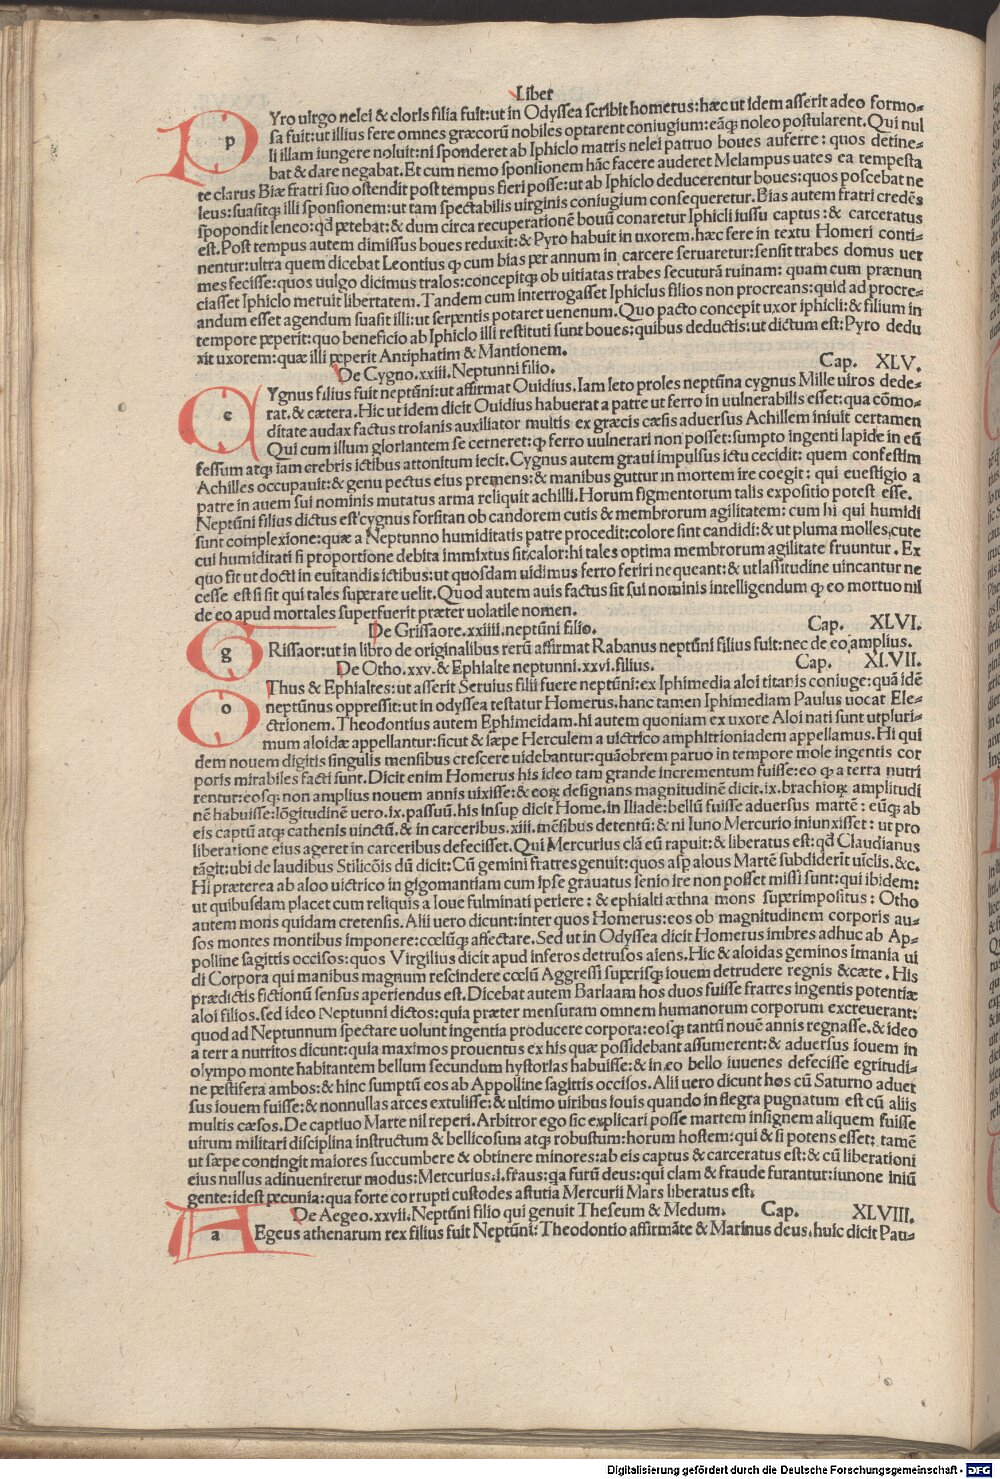 Liber
PYro uirgo nelei & cloris filia fuit:ut in Odyssea scribit homerus:hæc ut idem asserit adeo formo-
sa fuit:ut illius fere omnes græcorū nobiles optarent coniugium:eāqꝫ noleo postularent.Qui nul
li illam iungere noluit:ni sponderet ab Iphiclo matris nelei patruo boues auferre:quos detine-
bat & dare negabat.Et cum nemo sponsionem hāc facere auderet Melampus uates ea tempesta
te clarus Biæ fratri suo ostendit post tempus fieri posse:ut ab Iphiclo deducerentur boues:quos poscebat ne
leus:suasitqꝫ illi sponsionem:ut tam spectabilis uirginis coniugium consequeretur.Bias autem fratri credēs
spopondit leneo:qd̄ petebat:& dum circa recuperationē bouū conaretur Iphicli iussu captus:& carceratus
est.Post tempus autem dimissus boues reduxit:& Pyro habuit in uxorem.hæc fere in textu Homeri conti-
nentur:ultra quem dicebat Leontius ꝙ cum bias per annum in carcere seruaretur:sensit trabes domus uer
mes fecisse:quos uulgo dicimus tralos:concepitqꝫ ob uitiatas trabes secuturā ruinam:quam cum prænun
ciasset Iphiclo meruit libertatem.Tandem cum interrogasset Iphiclus filios non procreans:quid ad procre-
andum esset agendum suasit illi:ut serpentis potaret uenenum.Quo pacto concepit uxor iphicli:& filium in
tempore peperit:quo beneficio ab Iphiclo illi restituti sunt boues:quibus deductis:ut dictum est:Pyro dedu
xit uxorem:quæ illi peperit Antiphatim & Mantionem.
De Cygno.xxiii.Neptunni filio. Cap. XLV.
cYgnus filius fuit neptūni:ut affirmat Ouidius.Iam leto proles neptūna cygnus Mille uiros dede-
rat.& cætera.Hic ut idem dicit Ouidius habuerat a patre ut ferro in uulnerabilis esset:qua cōmo-
ditate audax factus troianis auxiliator multis ex græcis cæsis aduersus Achillem iniuit certamen
Qui cum illum gloriantem se cerneret:ꝙ ferro uulnerari non posset:sumpto ingenti lapide in eū
fessum atqꝫ iam crebris ictibus attonitum iecit.Cygnus autem graui impulsus ictu cecidit:quem confestim
Achilles occupauit:& genu pectus eius premens:& manibus guttur in mortem ire coegit:qui euestigio a
patre in auem sui nominis mutatus arma reliquit achilli.Horum figmentorum talis expositio potest esse.
Neptūni filius dictus est cygnus forsitan ob candorem cutis & membrorum agilitatem:cum hi qui humidi
sunt complexione:quæ a Neptunno humiditatis patre procedit:colore sint candidi:& ut pluma molles.cute
cui humiditati si proportione debita immixtus sit calor:hi tales optima membrorum agilitate fruuntur.Ex
quo fit ut docti in euitandis ictibus:ut quosdam uidimus ferro feriri nequeant:& ut lassitudine uincantur ne
cesse est si sit qui tales superare uelit.Quod autem auis factus sit sui nominis intelligendum ꝙ eo mortuo nil
de eo apud mortales superfuerit præter uolatile nomen.
De Grissaore.xxiiii.neptūni filio. Cap. XLVI.
gRissaor:ut in libro de originalibus rerū affirmat Rabanus neptūni filius fuit:nec de eo amplius.
De Otho.xxv.& Ephialte neptunni.xxvi.filius. Cap. XLVII.
oThus & Ephialtes:ut asserit Seruius filii fuere neptūni:ex Iphimedia aloi titanis coniuge:quā idē
neptūnus oppressit:ut in odyssea testatur Homerus.hanc tamen Iphimediam Paulus uocat Ele-
ctrionem.Theodontius autem Ephimeidam.hi autem quoniam ex uxore Aloi nati sunt ut pluri-
mum aloidæ appellantur:sicut & sæpe Herculem a uictrico amphitrioniadem appellamus.Hi qui
dem nouem digitis singulis mensibus crescere uidebantur:quāobrem paruo in tempore mole ingentis cor
poris mirabiles facti sunt.Dicit enim Homerus his ideo tam grande incrementum fuisse:eo ꝙ a terra nutri
rentur:eosqꝫ non amplius nouem annis uixisse:& eoꝝ designans magnitudinē dicit.ix.brachioꝝ amplitudi
nē habuisse:lōgitudinē uero.ix.passuū.his insup dicit Home.in Iliade:bellū fuisse aduersus martē:eūqꝫ ab
eis captū atqꝫ cathenis uinctū.& in carceribus.xiii.mēsibus detentū:& ni Iuno Mercurio iniunxisset:ut pro
liberatione eius ageret in carceribus defecisset.Qui Mercurius clā eū rapuit:& liberatus est:qd̄ Claudianus
tāgit:ubi de laudibus Stilicōis dū dicit:Cū gemini fratres genuit:quos asꝑ alous Martē subdiderīt uīclis.&c.
Hi præterea ab aloo uictrico in gigomantiam cum ipse grauatus senio ire non posset missi sunt:qui ibidem:
ut quibusdam placet cum reliquis a Ioue fulminati periere:& ephialti æthna mons superimpositus:Otho
autem mons quidam cretensis.Alii uero dicunt:inter quos Homerus:eos ob magnitudinem corporis au-
sos montes montibus imponere:cœlūqꝫ affectare.Sed ut in Odyssea dicit Homerus imbres adhuc ab Ap-
polline sagittis occisos:quos Virgilius dicit apud inferos detrusos aiens.Hic & aloidas geminos īmania ui
di Corpora qui manibus magnum rescindere cœlū Aggressi superisqꝫ iouem detrudere regnis & cæte.His
prædictis fictionū sensus aperiendus est.Dicebat autem Barlaam hos duos fuisse fratres ingentis potentiæ
aloi filios.sed ideo Neptunni dictos:quia præter mensuram omnem humanorum corporum excreuerant:
quod ad Neptunnum spectare uolunt ingentia producere corpora:eosqꝫ tantū nouē annis regnasse.& ideo
a terra nutritos dicunt:quia maximos prouentus ex his quæ possidebant assumerent:& aduersus iouem in
olympo monte habitantem bellum secundum hystorias habuisse:& in eo bello iuuenes defecisse egritudi-
ne pestifera ambos:& hinc sumptū eos ab Appolline sagittis occisos.Alii uero dicunt hos cū Saturno aduer
sus iouem fuisse:& nonnullas arces extulisse:& ultimo uiribus iouis quando in flegra pugnatum est cū aliis
multis cæsos.De captiuo Marte nil reperi.Arbitror ego sic explicari posse martem insignem aliquem fuisse
uirum militari disciplina instructum & bellicosum atqꝫ robustum:horum hostem:qui & si potens esset:tamē
ut sæpe contingit maiores succumbere & obtinere minores:ab eis captus & carceratus est:& cū liberationi
eius nullus adinueniretur modus:Mercurius.i.fraus:qa furū deus:qui clam & fraude furantur:iunone iniū
gente:idest pecunia:qua forte corrupti custodes astutia Mercurii Mars liberatus est.
De Aegeo.xxvii.Neptūni filio qui genuit Theseum & Medum. Cap. XLVIII.
aEgeus athenarum rex filius fuit Neptūni:Theodontio affirmāte & Marinus deus.huic dicit Pau-
Digitalisierung gefördert durch die Deutsche Forschungsgemeinschaft - DFG